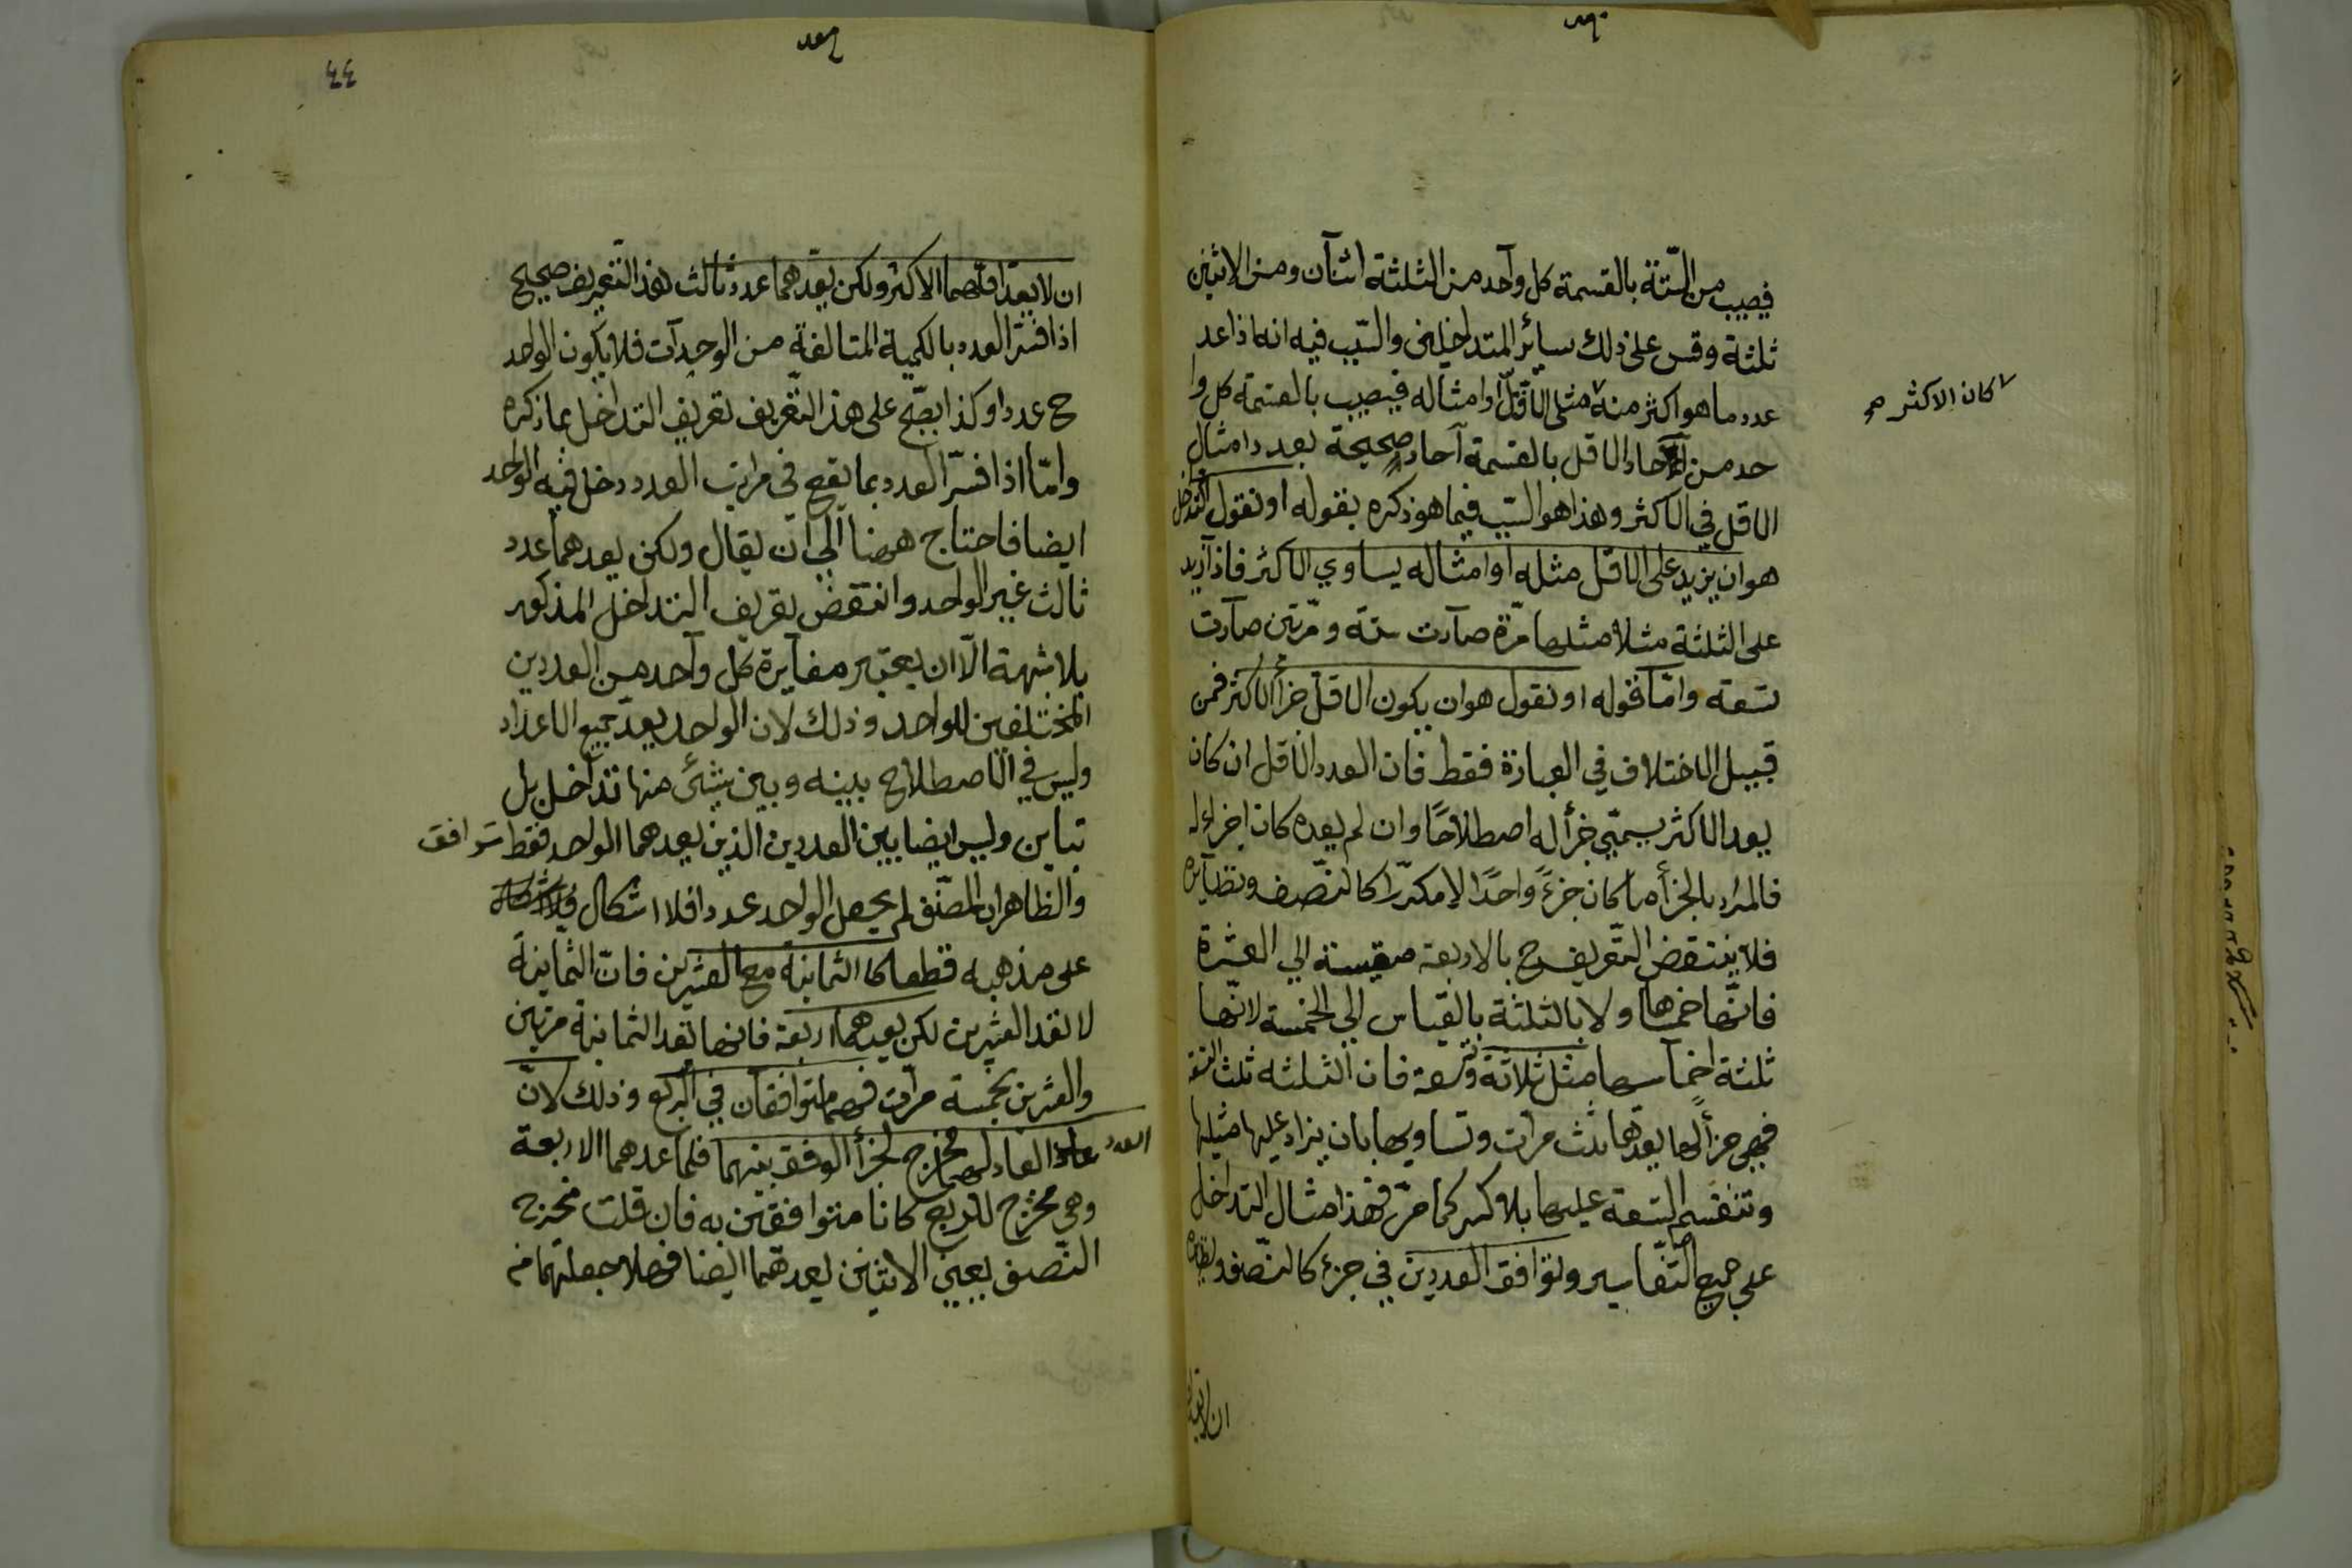 فيصيب من الستة بالقسمة كل واحد من الثلثة اثنان ومن الاثنين
ثلثة وقس على ذلك سائر المتداخلين والسبب فيه انه اذا عد
عدد ما هو اكثر منه مثلى الاقل او امثاله فيصيب بالقسمة كل وا
كان الاكثر صح
حد من آحاد الاقل بالقسمة آحاد صحيحة بعدد امثال
الاقل في الاكثر وهذا هو السبب فيما هو ذكره بقوله او نقول التداخل
هو ان يزيد على الاقل مثله او امثاله يساوي الاكثر فاذا زيد
على الثلثة مثلا مثلها مرّة صارت ستة ومرّتين صارت
تسعة وامّا قوله او نقول هو ان يكون الاقل جزأ الاكثر فمن
قبيل الاختلاف في العبارة فقط فان العدد الاقل ان كان
يعد الاكثر يسمّى جزأ له اصطلاحًا وان لم يعده كان اجزاء له
فالمراد بالجزأ ما كان جزءً واحدًا لا مكرّرا كالنّصف ونظايره
فلا ينتقض التّعريف ح بالاربعة مقيسة الي العشرة
فانّها خمساها ولا بالثلثة بالقياس الي الخمسة لانّها
ثلثة اخماسها مثل ثلاثة وتسعة فان الثلثه ثلث التسعة
فهي جزأ لها يعدّها ثلث مرات وتساويها بان يزاد عليها مثيلها
وتنقسم التسعة عليها بلا كسر كما مرّ فهذا مثال التداخل
على جميع التّفاسير وتوافق العددين في جزء كالنّصف ونظايره
ان لا يعد
٤٤
ان لا يعد اقلّهما الاكثر ولكن يعدّهما عدد ثالث هذا التّعريف صحيح
اذا فسّر العدد بالكمية المتالفة من الوحدات فلا يكون الواحد
ح عددا وكذا يصحّ على هذا التّعريف تعريف التداخل بما ذكره
وامّا اذا فسّر العدد بما يقع في مراتب العدد دخل فيه الواحد
ايضا فاحتاج ههنا الي ان يقال ولكن يعدهما عدد
ثالث غير الواحد وانتقض تعريف التداخل المذكور
بلا شبهة الّا ان يعتبر مغايرة كل واحد من العددين
المختلفين للواحد وذلك لان الواحد يعدّ جميع الاعداد
وليس في الاصطلاح بينه وبين شئ منها تداخل بل
تباين وليس ايضا بين العددين الذين يعدهما الواحد فقط توافق
والظاهر ان المصنّف لم يجعل الواحد عددا فلا اشكال
على مذهبه قطعا كالثمانية مع العشرين فان الثّمانية
لا تعد العشرين لكن يعدهما اربعة فانها تعد الثمانية مرتين
والعشرين بخمسة مرات فهما متوافقان في الربع وذلك لانّ
العدد العاد لهما مخرج لجزأ الوفق بينهما فلما عدهما الاربعة
وهي مخرج للربع كانا متوافقين به فان قلت مخرج
النّصف يعني الاثنين يعدّهما ايضا فهلا جعلتهما من